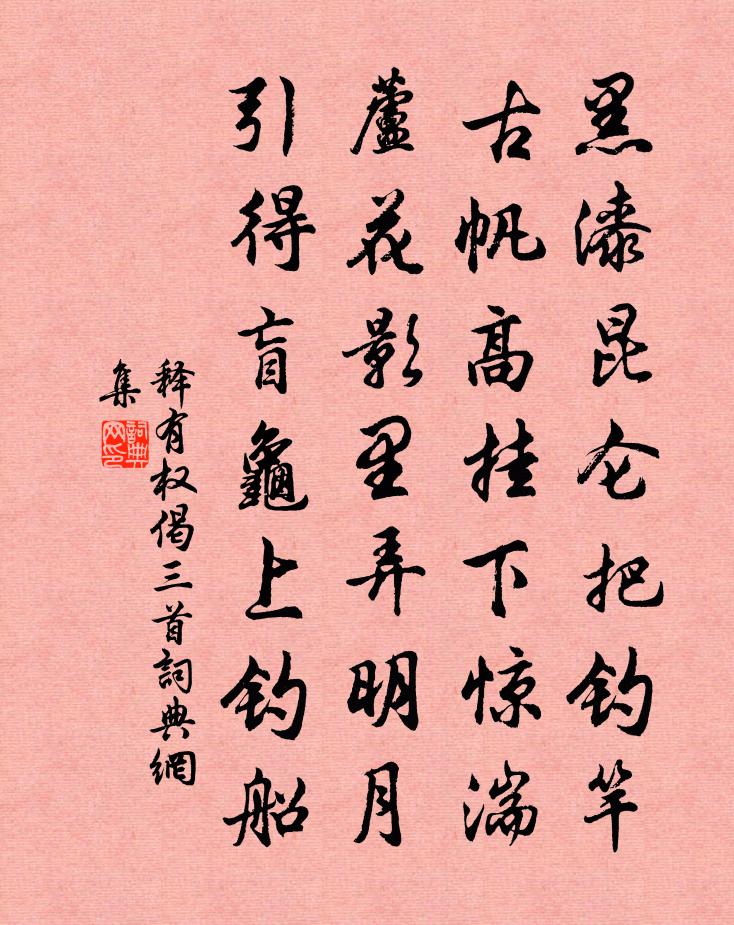 黑漆昆仑把钓竿
古帆高挂下惊湍
蘆花影里弄明月
引得盲龜上钓船
释有权偈三首詞典網
集
詞典网印